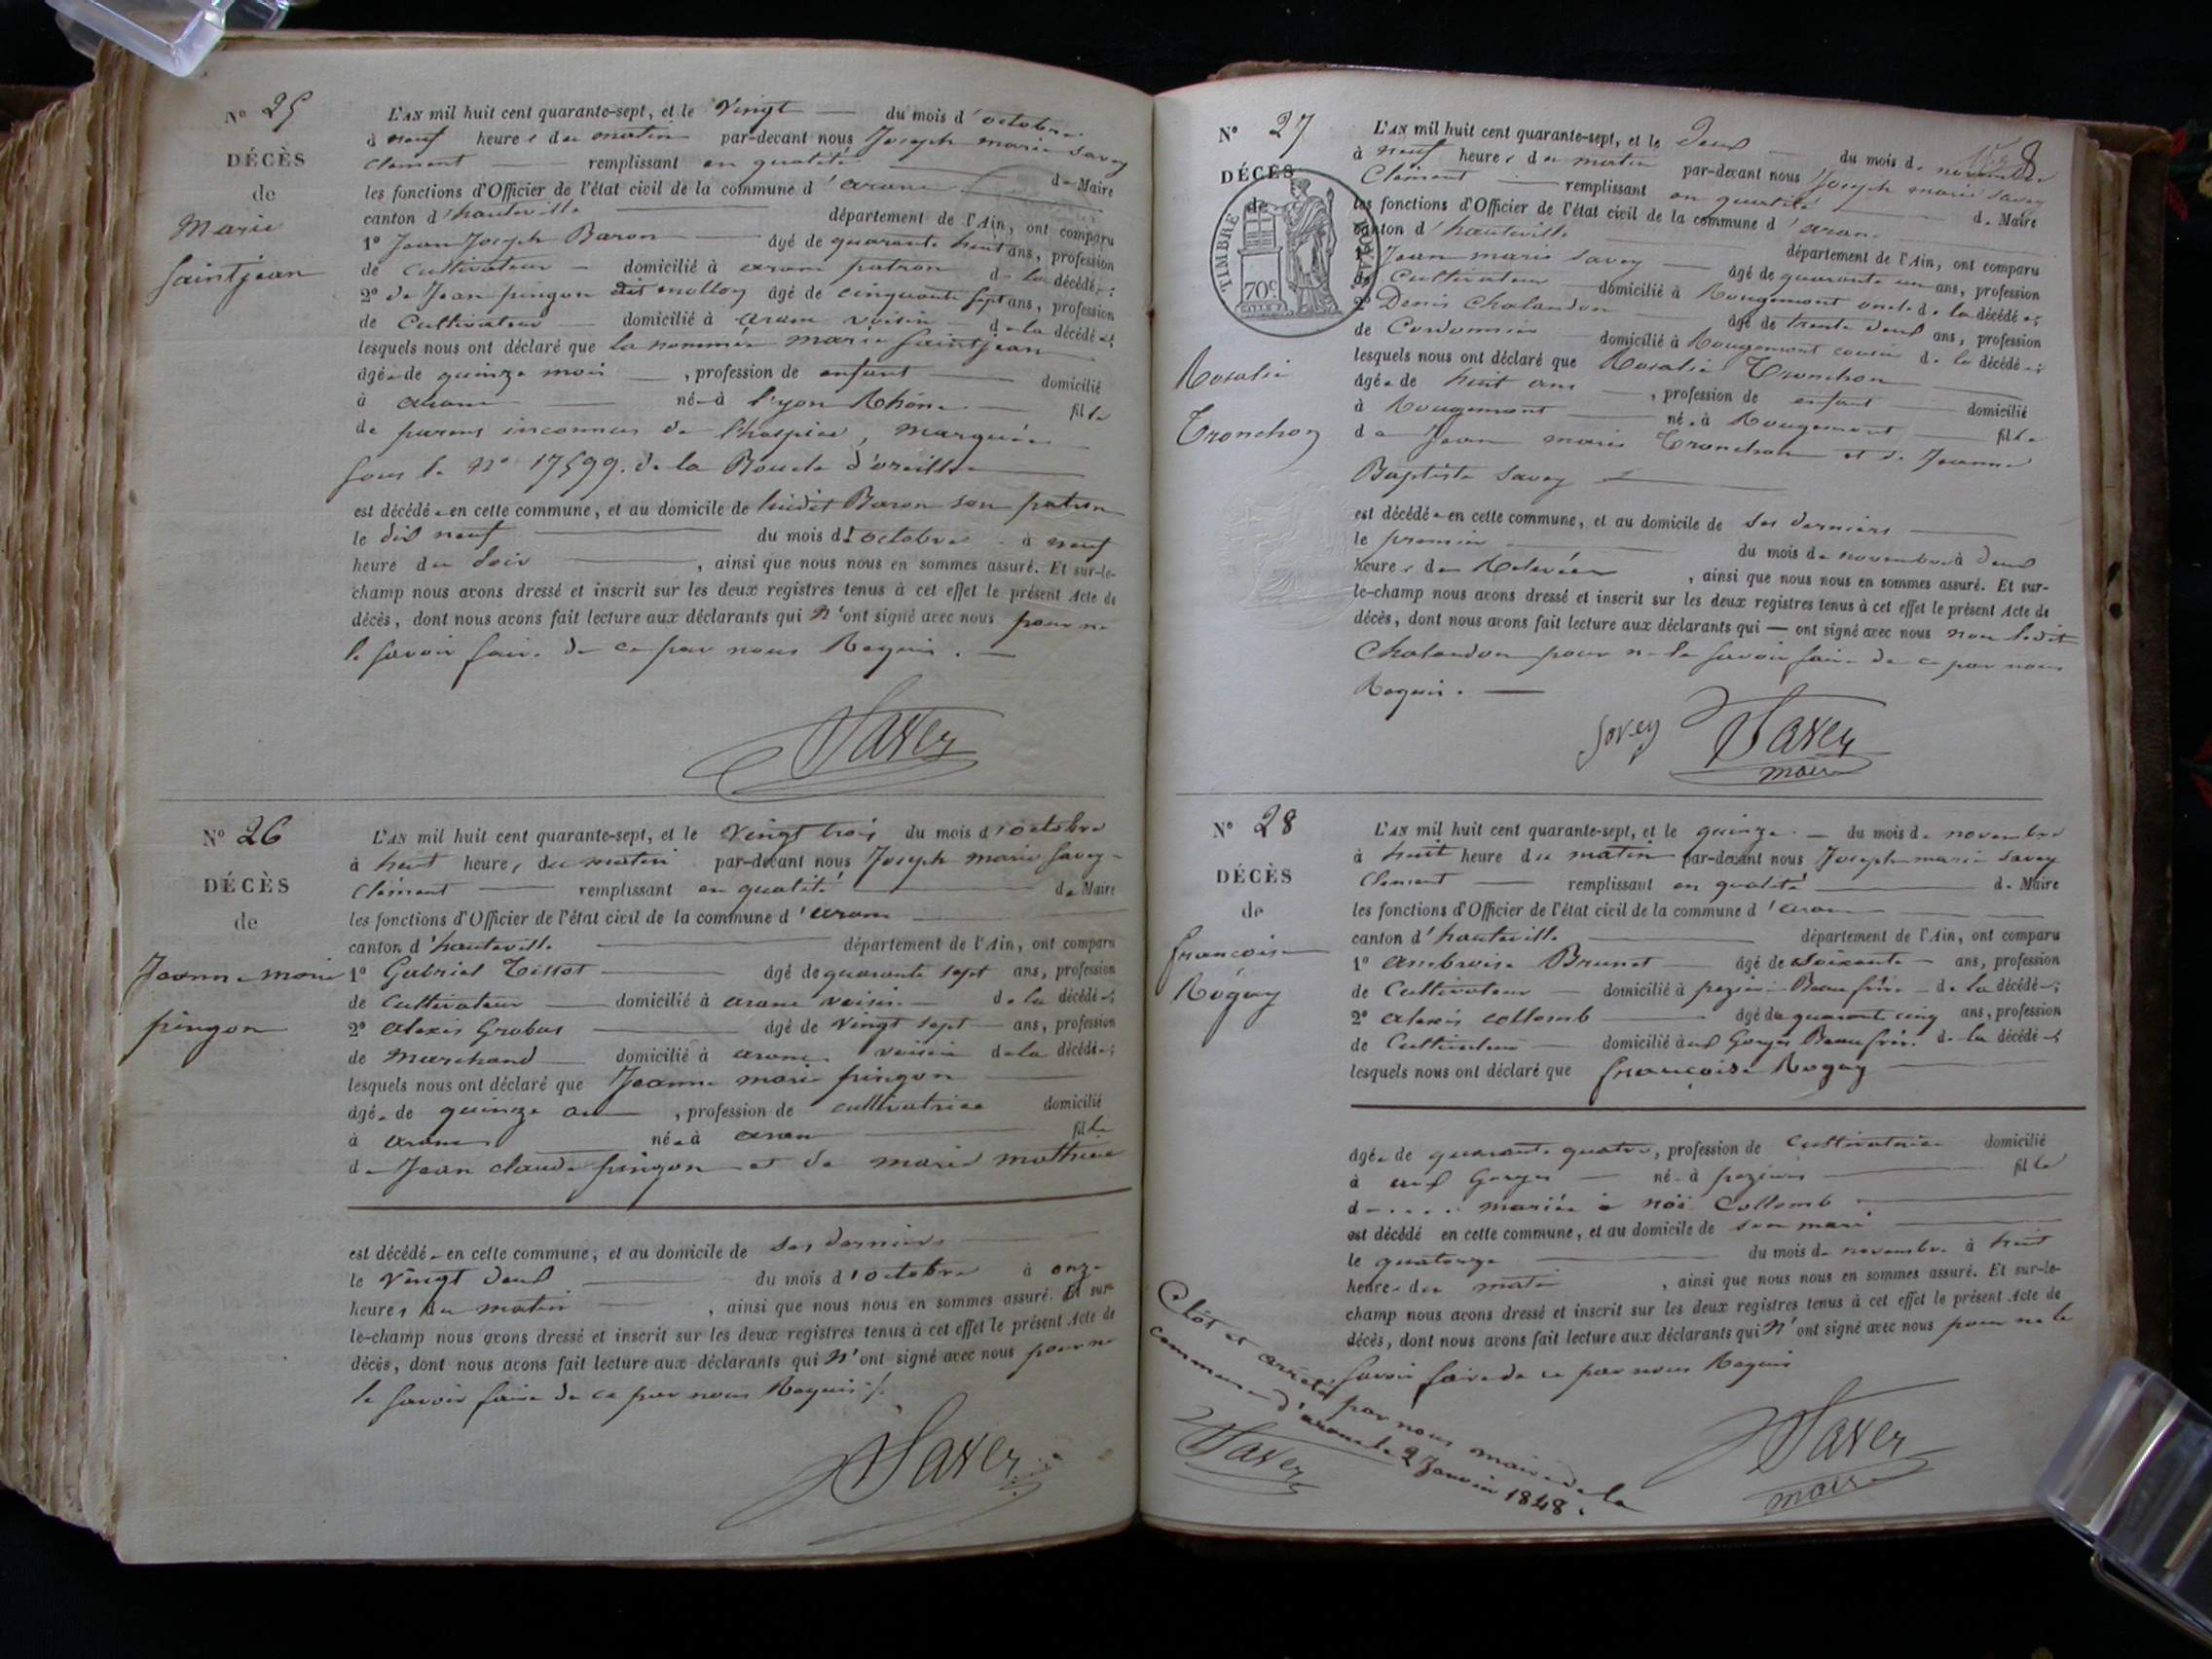 N° 25
DÉCÈS
de
Marie
Saintjean
L'AN mil huit cent quarante-sept, et le Vingt du mois d'octobre
à neuf heures du matin par-devant nous Joseph marie Savey
Clement remplissant en qualité de Maire
les fonctions d'Officier de l'état civil de la commune d'arane
canton d'hauteville département de l'Ain, ont comparu
1° Jean Joseph Baron âgé de quarante huit ans, profession
de Cultivateur domicilié à arane patron de la décédée;
2° de Jean pingon dit mollon âgé de cinquante sept ans, profession
de Cultivateur domicilié à arane voisin de la décédée;
lesquels nous ont déclaré que la nommée marie Saintjean
âgée de quinze mois, profession de enfant domicilié
à arane née à Lyon Rhône fille
de parens inconnus de l'hospice, marquée
sous le N° 17599. de la Boucle d'oreille
est décédée en cette commune, et au domicile de ludit Baron son patron
le dix neuf du mois d'octobre à neuf
heure du soir, ainsi que nous nous en sommes assuré. Et sur-le-
champ nous avons dressé et inscrit sur les deux registres tenus à cet effet le présent Acte de
décès, dont nous avons fait lecture aux déclarants qui n'ont signé avec nous pour ne
le savoir faire de ce par nous Requis.
Savey
N° 26
DÉCÈS
de
Jeanne marie
pingon
L'AN mil huit cent quarante-sept, et le Vingt trois du mois d'octobre
à huit heures du matin par-devant nous Joseph marie Savey
Clément remplissant en qualité de Maire
les fonctions d'Officier de l'état civil de la commune d'arane
canton d'hauteville département de l'Ain, ont comparu
1° Gabriel Tissot âgé de quarante sept ans, profession
de Cultivateur domicilié à arane voisin de la décédée;
2° alexis Grobas âgé de vingt sept ans, profession
de Marchand domicilié à arane voisin de la décédée;
lesquels nous ont déclaré que Jeanne marie pingon
âgée de quinze ans, profession de cultivatrice domicilié
à arane née à arane fille
de Jean claude pingon et de marie mathieu
est décédée en cette commune, et au domicile de ses derniers
le vingt deux du mois d'octobre à onze
heures du matin, ainsi que nous nous en sommes assuré. Et sur-
le-champ nous avons dressé et inscrit sur les deux registres tenus à cet effet le présent Acte de
décès, dont nous avons fait lecture aux déclarants qui n'ont signé avec nous pour ne
le savoir faire de ce par nous Requis./.
Savey
8
N° 27
DÉCÈS
de
TIMBRE ROYAL
70c
Rosalie
Tronchon
L'AN mil huit cent quarante-sept, et le Deux du mois de novembre
à neuf heures du matin par-devant nous Joseph marie Savey
Clément remplissant en qualité de Maire
les fonctions d'Officier de l'état civil de la commune d'arane
canton d'hauteville département de l'Ain, ont comparu
1° Jean marie Savey âgé de quarante un ans, profession
de Cultivateur domicilié à Rougemont oncle de la décédée;
2° Denis Chalandon âgé de trente deux ans, profession
de Cordonnier domicilié à Rougemont cousin de la décédée;
lesquels nous ont déclaré que Rosalie Tronchon
âgée de huit ans, profession de enfant domicilié
à Rougemont née à Rougemont fille
de Jean marie Tronchon et de Jeanne
Baptiste Savey
est décédée en cette commune, et au domicile de ses derniers
le premier du mois de novembre à deux
heures de Relevée, ainsi que nous nous en sommes assuré. Et sur-
le-champ nous avons dressé et inscrit sur les deux registres tenus à cet effet le présent Acte de
décès, dont nous avons fait lecture aux déclarants qui — ont signé avec nous non ledit
Chalandon pour ne le savoir faire de ce par nous
Requis.
Savey Savey
maire
N° 28
DÉCÈS
de
françoise
Rogay
L'AN mil huit cent quarante-sept, et le quinze du mois de novembre
à huit heure du matin par-devant nous Joseph marie Savey
Clement remplissant en qualité de Maire
les fonctions d'Officier de l'état civil de la commune d'arane
canton d'hauteville département de l'Ain, ont comparu
1° ambroise Brunet âgé de Soixante ans, profession
de Cultivateur domicilié à pezieu Beau frère de la décédée;
2° alexis collomb âgé de quarante cinq ans, profession
de Cultivateur domicilié aux Gorges Beau frère de la décédée;
lesquels nous ont déclaré que françoise Rogay
âgée de quarante quatre, profession de Cultivatrice domicilié
à aux Gorges née à pezieu fille
de .... mariée à noé Collomb
est décédé en cette commune, et au domicile de son mari
le quatorze du mois de novembre à huit
heures du matin, ainsi que nous nous en sommes assuré. Et sur-le-
champ nous avons dressé et inscrit sur les deux registres tenus à cet effet le présent Acte de
décès, dont nous avons fait lecture aux déclarants qui n'ont signé avec nous pour ne le
savoir faire de ce par nous Requis
Savey
maire
Clôs et arrêté par nous maire de la
commune d'arane le 2 Janvier 1848.
Savey